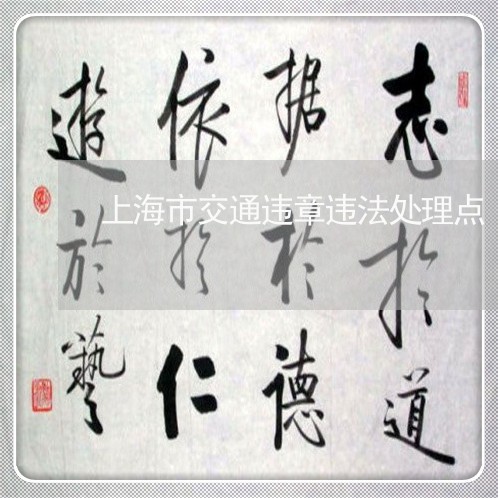 志於道
据於德
依於仁
遊於藝
上海市交通违章违法处理点